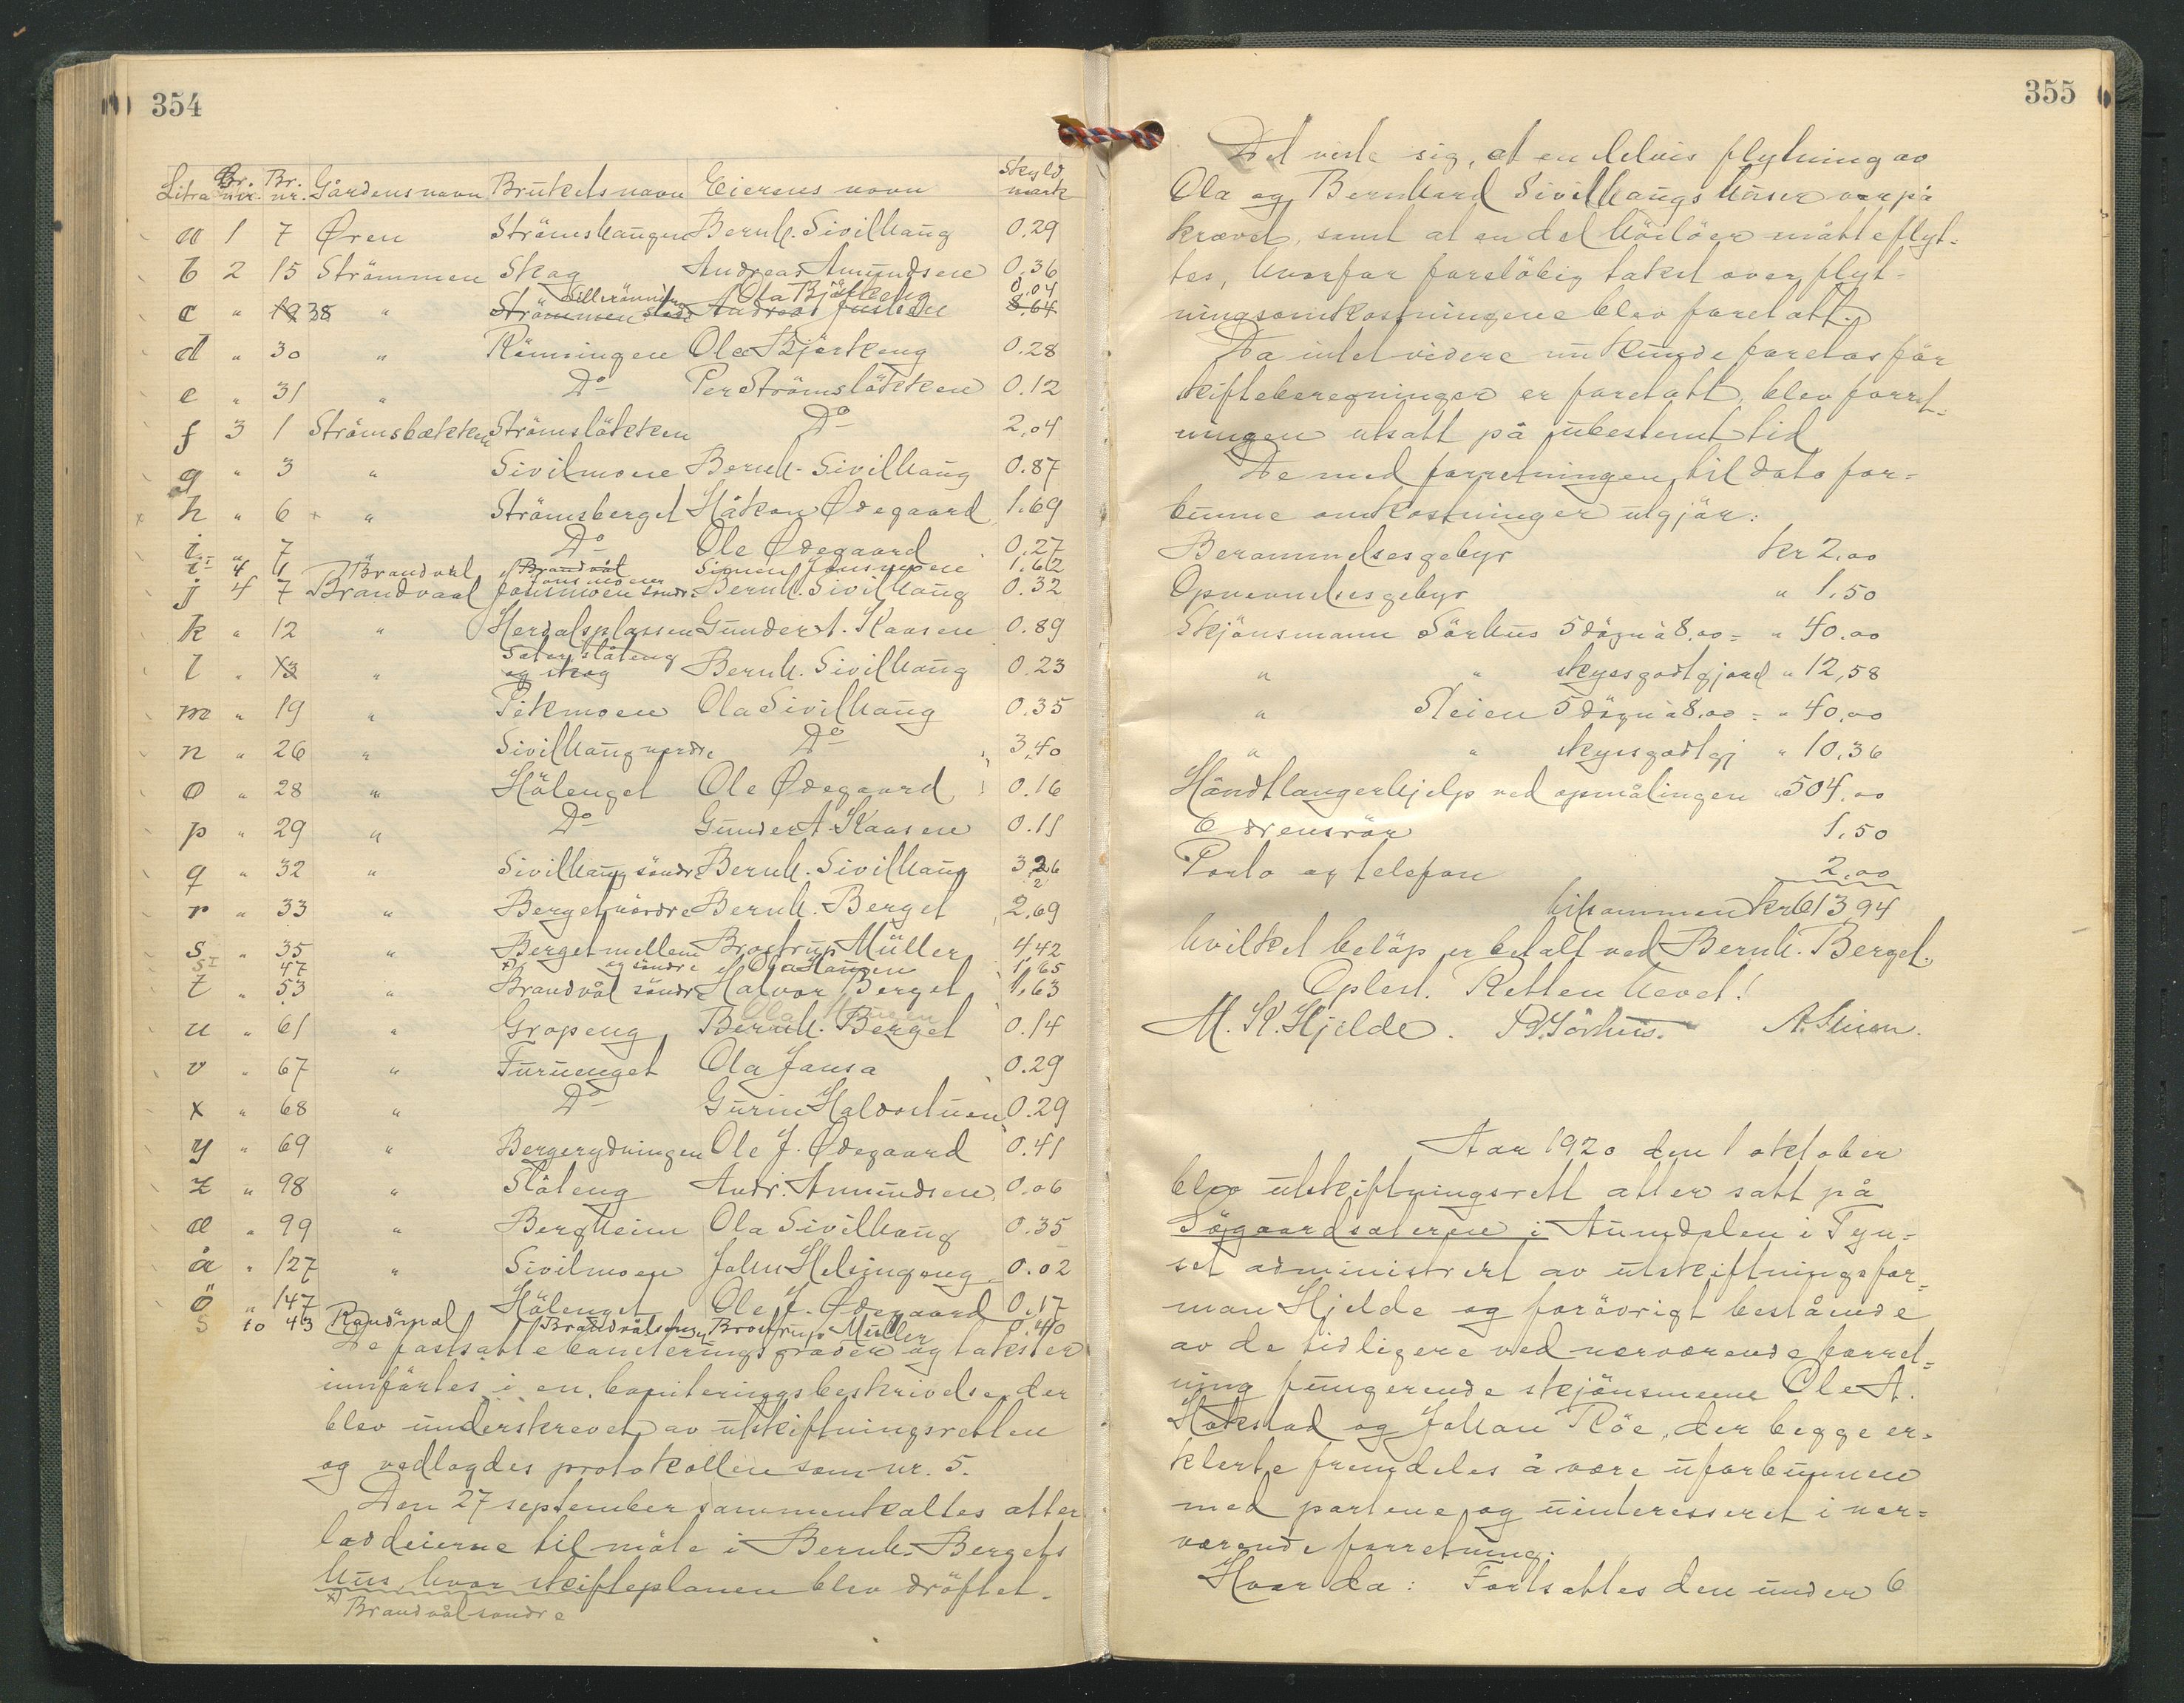 354
Litra Gr. nr. Br. nr. Gårdens navn Brukets navn Eierens navn Skyld mark
a 1 7 Øren Strömshaugen Bernh. Sivilhaug 0.29
b 2 15 Strömmen Skog Andreas Amundsen 0.36
Ola Björkeng 0.04
c " 19 38 " Strömmen Andreas 8.64
d " 30 " Rönningen Ola Björkeng 0.28
e " 31 " Do Per Strömslökken 0.12
f 3 1 Strömsbækken Strömslökken Do 2.04
g " 3 " Sivilmoen Bernh. Sivilhaug 0.87
h " 6 " Strömsberget Håkon Ødegaard 1.69
i " 7 " Do Ole Ødegaard 0.27
4 Brandvål Brandvål Jonsmoen 1.62
j 4 7 Brandvaal Jonsmoen søndre Bernh. Sivilhaug 0.32
k " 12 " Herdalsplassen Gunder A. Kaasen 0.89
l " 13 " Sater, slåteng og skog Bernh. Sivilhaug 0.23
m " 19 " Pekmoen Ola Sivilhaug 0.35
n " 26 " Sivilhaug nordre Do 3.40
o " 28 " Hölenget Ole Ødegaard 0.16
p " 29 " Do Gunder A. Kaasen 0.11
q " 32 " Sivilhaug söndre Bernh. Sivilhaug 3.26
r " 33 " Berget nordre Bernh. Berget 2.69
s " 35 " Berget mellem Brostrup Müller 4.42
s I 47 og söndre Ola Haugen 1.65
t " 53 " Brandvål söndre Halvor Berget 1.63
Ola Haugen
u " 61 " Gropeng Bernh. Berget 0.14
v " 67 " Furuenget Ola Jansa 0.29
x " 68 " Do Gurin Halvostuen 0.29
y " 69 " Bergerydningen Ole J. Ødegaard 0.41
z " 98 " Slåteng Andr. Amundsen 0.06
æ " 99 " Bergheim Ola Sivilhaug 0.35
å " 127 " Sivilmoen John Helsingeng 0.02
ö " 147 Hölenget Ole J. Ødegaard 0.17
10 43 Randmæl Brostrup Müller 0.40
De fastsatte boniteringsgrader og takster
innførtes i en boniteringsbeskrivelse, der
blev underskrevet av utskiftningsretten
og vedlagdes protokollen som nr. 5.
Den 27 september sammenkaltes atter
loddeierne til møte i Bernh. Bergets
hus, hvor skifteplanen blev dröftet.
x Brandvål söndre
355
Det viste sig, at en delvis flytning av
Ola og Bernhard Sivilhaugs huser var på
krævet, samt at en del höilöer måtte flyt-
tes, hvorfor foreløbig takst over flyt-
ningsomkostningene blev foretatt.
Da intet videre nu kunde foretas för
skifteberegninger er foretatt, blev forret-
ningen utsatt på ubestemt tid
De med forretningen til dato for-
bunne omkostninger utgjör:
Berammelsesgebyr kr 2.00
Opnevnelsesgebyr " 1.50
Skjönsmann Sörhus 5 dögn à 8.00 = " 40.00
" " skyssgodtgjoreld " 12,58
" Steien 5 dögn à 8.00 = " 40.00
" " skyssgodtgj " 10.36
Håndtlangerhjelp ved opmålingen " 504.00
6 drensrör 1.50
Porto og telefon 2.00
tilsammen kr 613 94
hvilket belöp er betalt ved Bernh. Berget.
Oplest. Retten hevet!
M. K. Hjelde. P. Sörhus. A. Steien.
Aar 1920 den 1 oktober
blev utskiftningsrett atter satt på
Søgaardsæteren i Aumdalen i Tyn-
set administrert av utskiftningsfor-
man Hjelde og forövrigt bestående
av de tidligere ved nærværende forret-
ning fungerende skjönsmenn Ole A.
Hokstad og Johan Röe, der begge er-
klerte fremdeles å være uforbunnen
med partene og uinteresseret i nær-
værende forretning.
Hvor da: Fortsattes den under 6